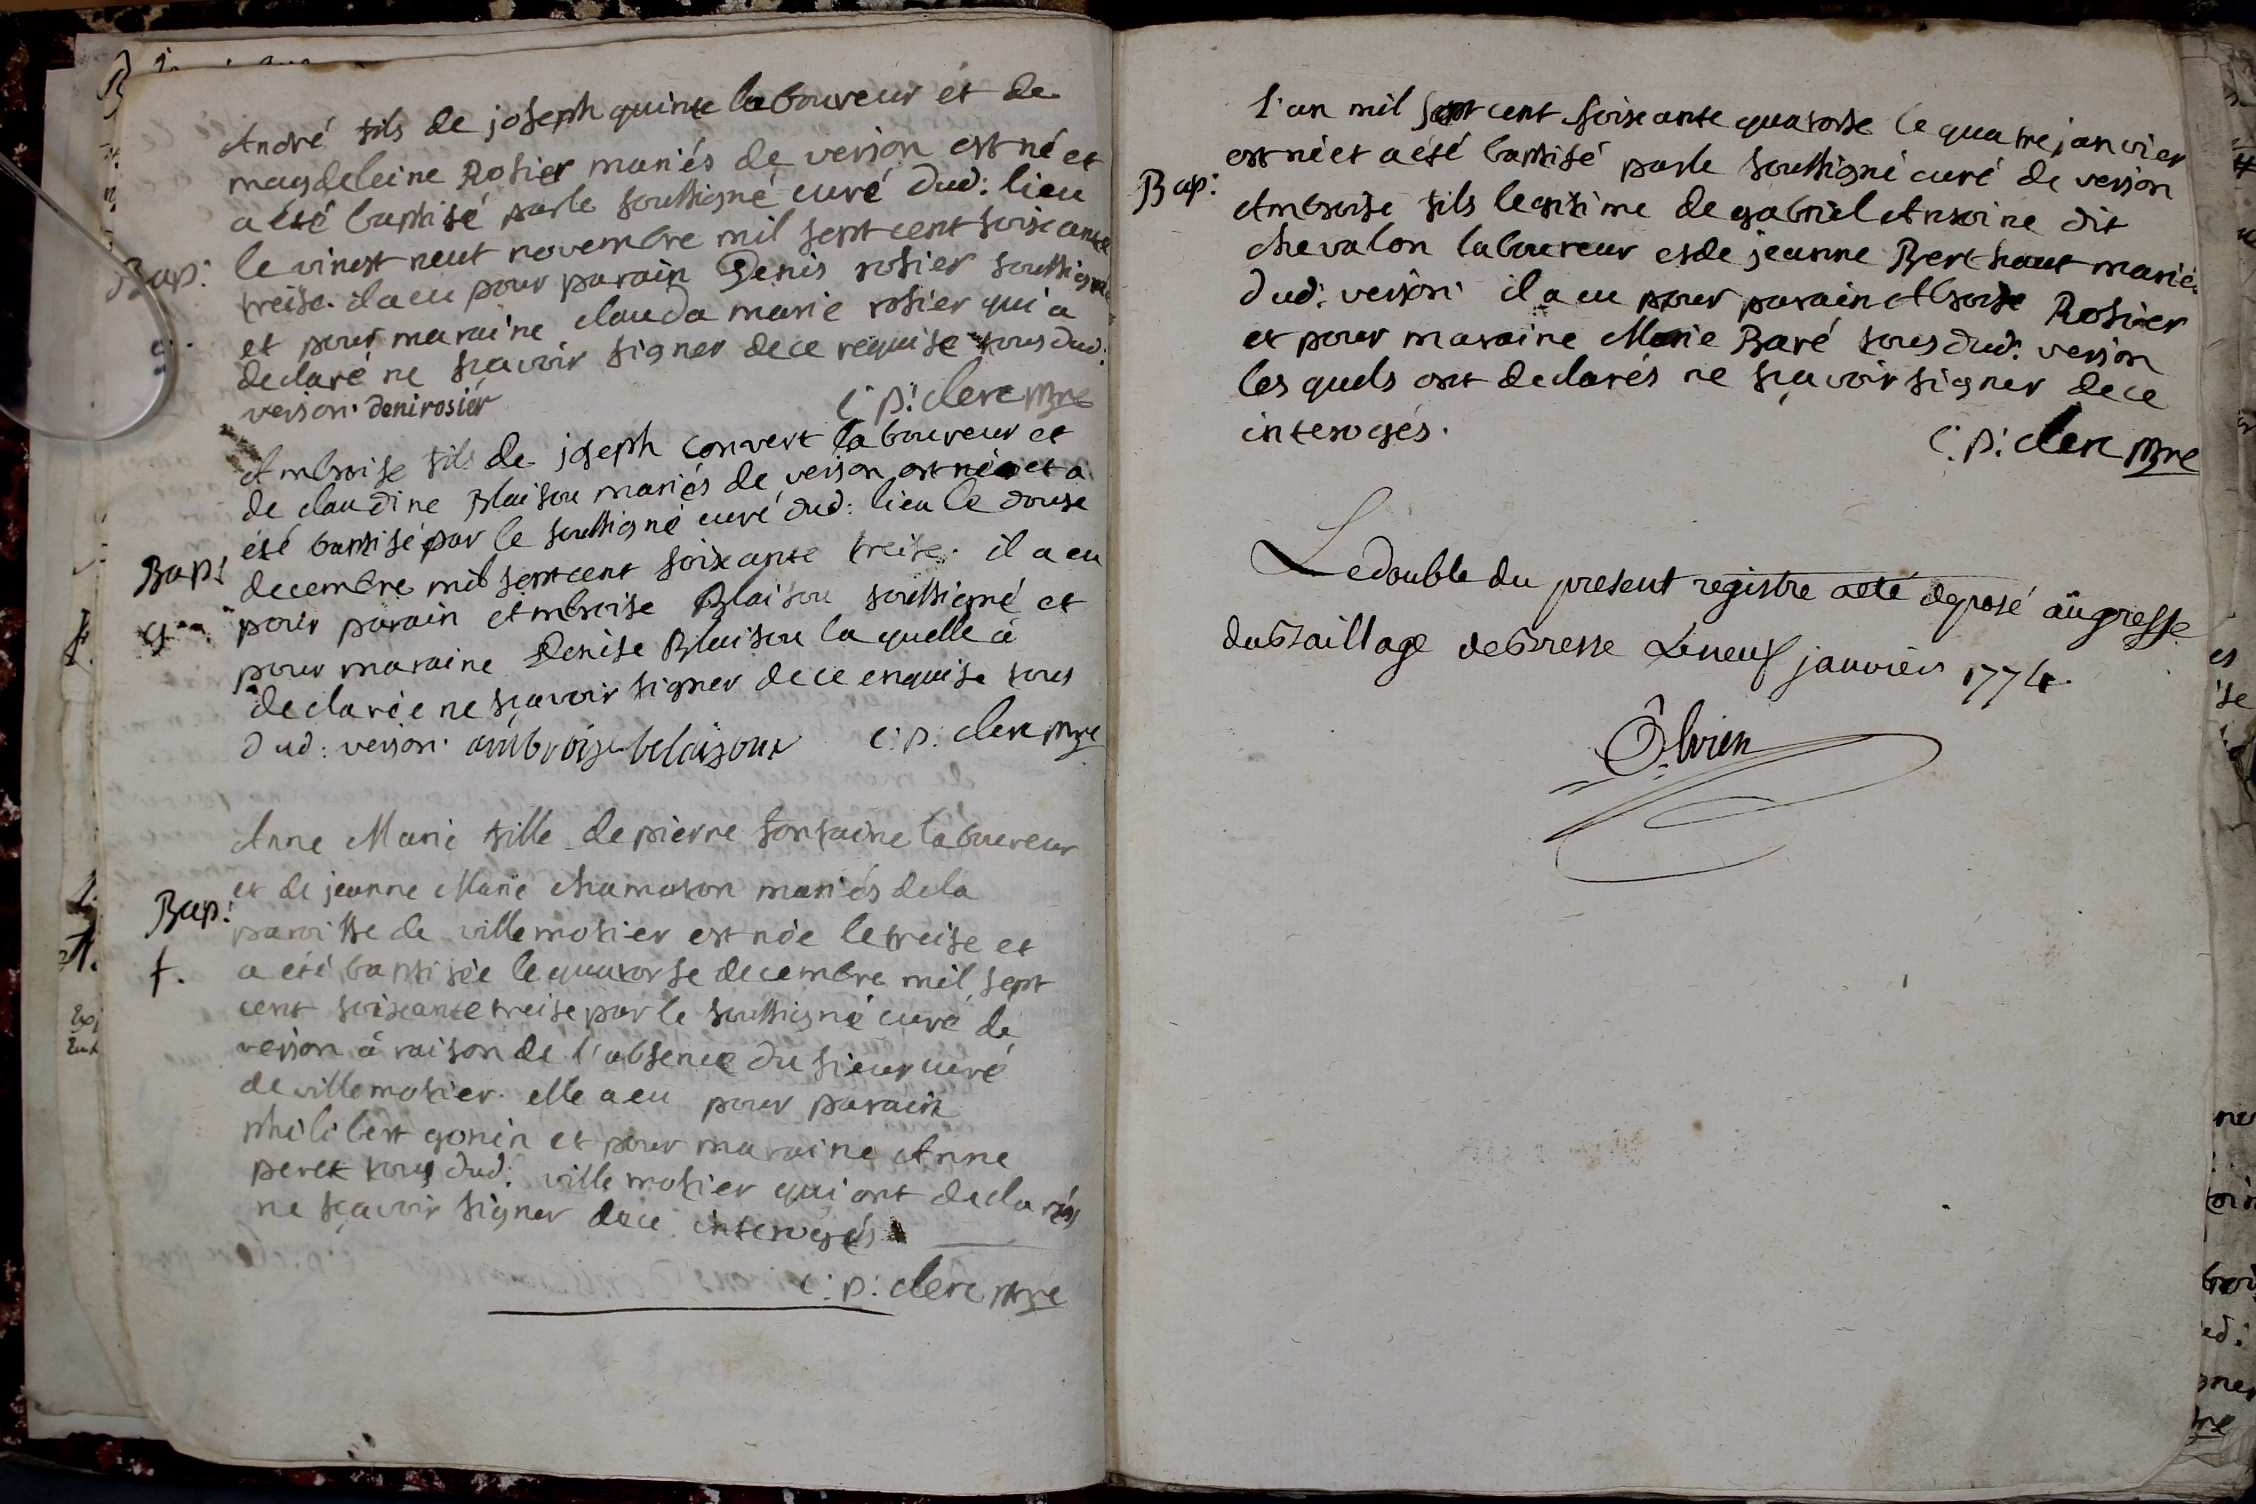 André fils de joseph quinte laboureur et de
magdeleine Rosier mariés de verjon est né et
a été baptisé par le soussigné curé dud: lieu
Bap: le vingt neuf novembre mil sept cent soixante
treise. il a eu pour parain Denis rosier soussigné
et pour maraine clauda marie rosier qui a
declaré ne sçavoir signer de ce requise tous dud:
verjon. denirosiér c: p: clerc ptre
Ambroise fils de joseph convert laboureur et
de claudine Blaisou mariés de verjon est né et a
été baptisé par le soussigné curé dud: lieu le douse
Bap: decembre mil sept cent soixante treise. il a eu
pour parain Ambroise Blaisou soussigné et
pour maraine Denise Blaisou la quelle a
declarée ne sçavoir signer de ce enquise tous
dud: verjon. ambroise belaisoux c: p: clerc ptre
Anne Marie fille de pierre fontaine laboureur
et de jeanne Marie chamaton mariés de la
Bap: paroisse de villemotier est née le treise et
f. a été baptisée le quatorse decembre mil sept
cent soixante treise par le soussigné curé de
verjon à raison de l'absence du sieur curé
de villemotier. elle a eu pour parain
philibert gonin et pour maraine Anne
peret tous dud: villemotier qui ont declarés
ne sçavoir signer de ce interogés
c: p: clerc ptre
l'an mil sept cent soixante quatorse le quatre janvier
est né et a été baptisé par le soussigné curé de verjon
Bap: Ambroise fils legitime de gabriel Antoine dit
chevalon laboureur et de jeanne Berthaut mariés
dud: verjon. il a eu pour parain Abroise Rosier
et pour maraine Marie Baré tous dud: verjon
les quels ont declarés ne sçavoir signer de ce
interogés.
c: p: clerc ptre
Le double du present registre a eté deposé au greffe
du Baillage de Bresse Le neuf janvier 1774.